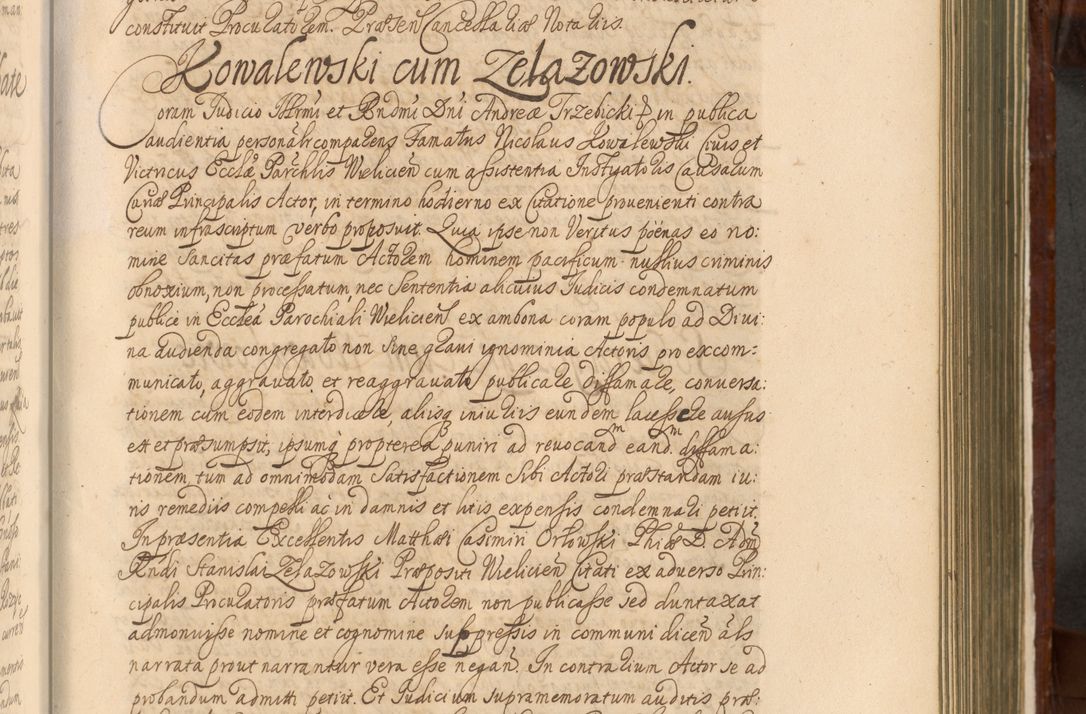 constituit Procuratorem. Præsen Cancellariæ Notariis.
Kowalewski cum Zelazowski.
Coram Judicio Illrmi et Rndmi Dni Andreæ Trzebicki in publica
audientia personalr comparens Famatus Nicolaus Kowalewski Civis et
Victricus Ecclæ Parchlis Wielicień cum assistentia Instigatoris Causarum
Curiæ Principalis Actor, in termino hodierno ex Citatione provenienti contra
reum infrascriptum verbo proposuit. Quia ipse non Veritus pœnas eo no:
mine sancitas præfatum Actorem hominem pacificum nullius criminis
obnoxium, non processatum, nec Sententia alicuius Judicis condemnatum
publice in Ecclea Parochiali Wielicień ex ambona coram populo ad Divi:
na audienda congregato non sine gravi ignominia Actoris pro excom:
municato, aggravato, et reaggravato publicare diffamare, conversa:
tionem cum eodem interdicere, aliisq iniuriis eundem lacessere ausus
est et præsumpsit, ipsumq propterea puniri ad revocandm eandm diffama:
tionem, tum ad omnimodam satisfactionem sibi Actori præstandam iu:
ris remediis compelli ac in damnis et litis expensis condemnari petiit.
In præsentia Excellentis Matthæi Casimiri Orłowski Phiæ D. Adm
Rndi Stanislai Zelazowski Præpositi Wielicień Citati ex adverso Prin:
cipalis Procuratoris præfatum Actorem non publicasse sed duntaxat
admonuisse nomine et cognomine suppressis in communi dicen als
narrata prout narrantur vera esse negan. In contrarium Actor se ad
probandum admitti petiit. Et Judicium supramemoratum auditis præ: